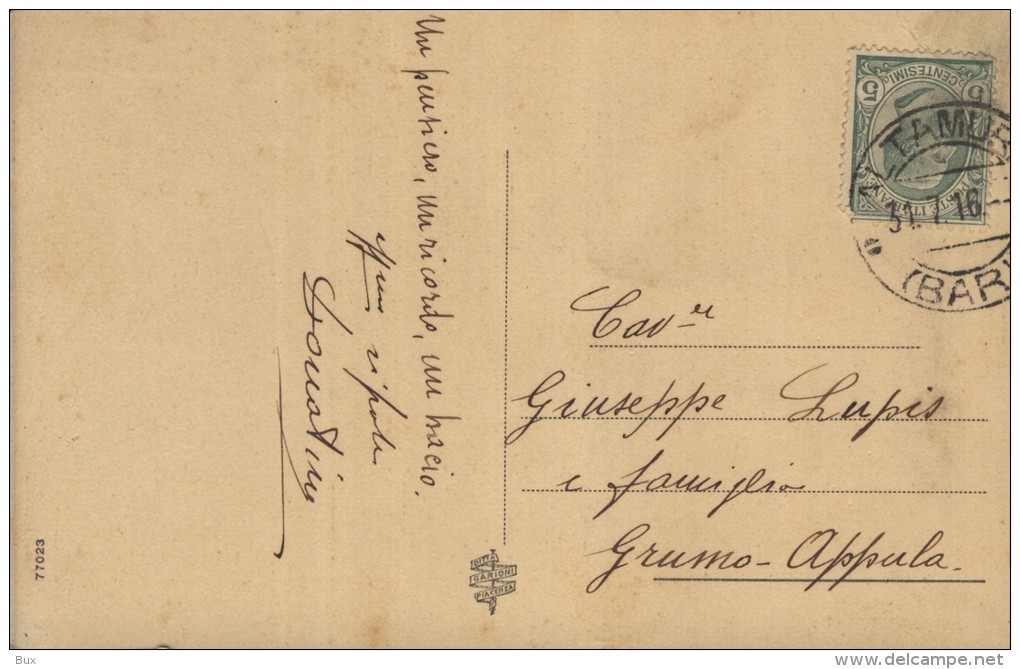 Un pensiero, un ricordo, un bacio.
nipote
Donatino
Cav.er
Giuseppe Lupis
e famiglia
Grumo-Appula
5 CENTESIMI 5
POSTE ITALIANE
31.7.16
(BARI
DITTA
GARIONI
PIACENZA
77023
Bux
www.delcampe.net